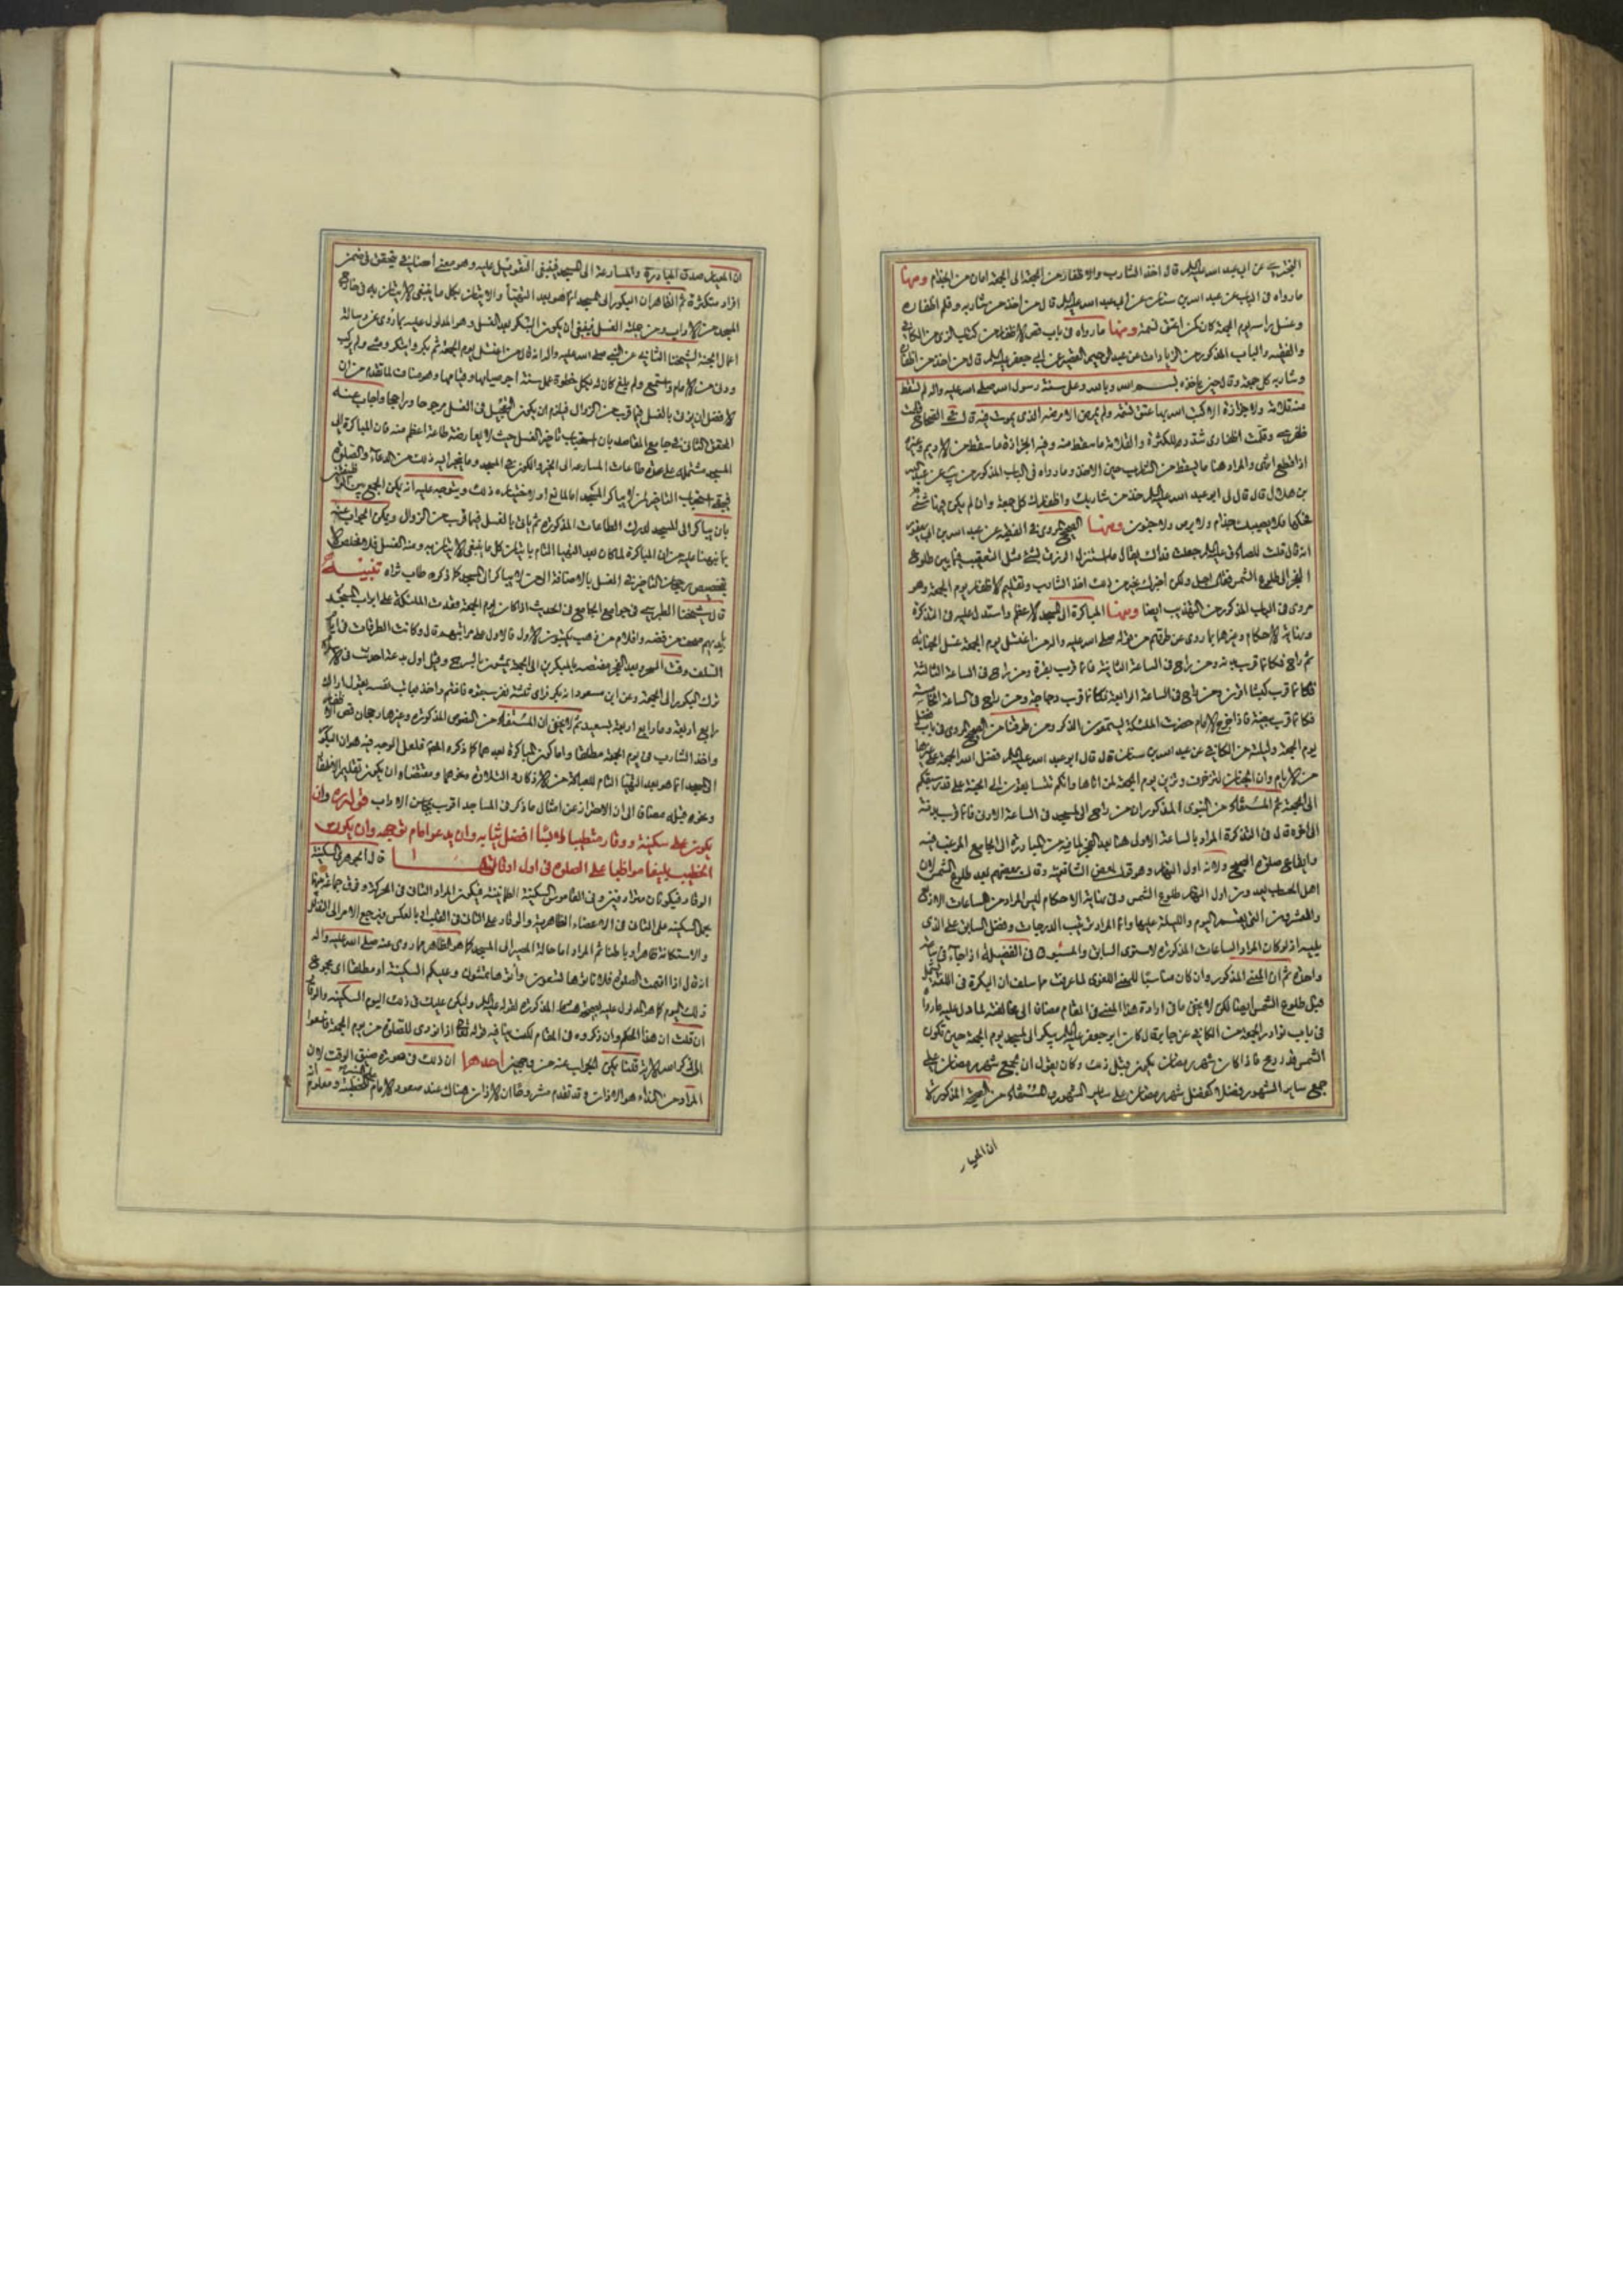 البختري عن ابي عبد الله عليه السلام قال اخذ الشارب والاظفار من الجمعة الى الجمعة امان من الجذام ومنها
ما رواه في الباب عن عبد الله بن سنان عن ابي عبد الله عليه السلام قال من اخذ من شاربه وقلم اظفاره
وغسل راسه يوم الجمعة كان كمن اعتق نسمة ومنها ما رواه في باب قص الاظفار من كتاب الزي من الكافي
والفقيه والباب المذكور من الزيادات عن عبد الرحيم القصير عن ابي جعفر عليه السلام قال من اخذ من اظفاره
وشاربه كل جمعة وقال حين ياخذه بسم الله وبالله وعلى سنة رسول الله صلى الله عليه واله لم تسقط
منه قلامة ولا جزازة الا كتب الله بها عتق نسمة ولم يمرض الا مرضه الذي يموت فيه قال في الصحاح قلمت
ظفري وقلمت اظفاري شدد للكثرة والقلامة ما سقط منه وفيه الجزازة ما سقط من الاديم وغيره
اذا قطع انتهى والمراد هنا ما يسقط من الشارب حين الاخذ وما رواه في الباب المذكور من
بن هلال قال قال لي ابو عبد الله عليه السلام خذ من شاربك واظفارك كل جمعة وان لم يكن فيها شيء
فحكها فلا يصيبك جذام ولا برص ولا جنون ومنها الصحيح المروي في الفقيه عن عبد الله بن ابي يعفور
انه قال قلت للصادق عليه السلام جعلت فداك يقال ما استنزل الرزق بشيء مثل التعقيب فيما بين طلوع
الفجر الى طلوع الشمس فقال اجل ولكن اخبرك بخير من ذلك اخذ الشارب وتقليم الاظفار يوم الجمعة وهو
مروي في الباب المذكور من التهذيب ايضا ومنها المباكرة الى المسجد الاعظم واستدل عليه في التذكرة
ونهاية الاحكام وغيرهما بما روي عن طرقهم من قوله صلى الله عليه واله من اغتسل يوم الجمعة غسل الجنابة
ثم راح فكانما قرب بدنة ومن راح في الساعة الثانية فكانما قرب بقرة ومن راح في الساعة الثالثة
فكانما قرب كبشا اقرن ومن راح في الساعة الرابعة فكانما قرب دجاجة ومن راح في الساعة الخامسة
فكانما قرب بيضة فاذا خرج الامام حضرت الملئكة يستمعون الذكر ومن طرقنا من الصحيح المروي في باب فضل
يوم الجمعة وليلته من الكافي عن عبد الله بن سنان قال قال ابو عبد الله عليه السلام فضل الله الجمعة على غيرها
من الايام وان الجنان لتزخرف وتزين يوم الجمعة لمن اتاها وانكم تتسابقون الى الجنة على قدر سبقكم
الى الجمعة ثم المستفاد من النبوي المذكور ان من راح الى المسجد في الساعة الاولى فكانما قرب بدنة
الى اخره قال في التذكرة المراد بالساعة الاولى هنا بعد الفجر لما فيه من المبادرة الى الجامع المرغب فيه
وايقاع صلوة الصبح ولانه اول النهار وهو قول بعض الشافعية وقال بعضهم بعد طلوع الشمس لان
اهل الحساب يعدون اول النهار طلوع الشمس وفي نهاية الاحكام ليس المراد من الساعات الاربع
والعشرين التي يقسم اليوم والليلة عليها وانما المراد ترتيب الدرجات وفضل السابق على الذي
يليه اذ لو كان المراد الساعات المذكورة لاستوى السابق والمسبوق في الفضيلة اذا جاءا في ساعة
واحدة ثم ان المعنى المذكور وان كان مناسبا للمعنى اللغوي لما عرفت مما سلف ان البكرة في اللغة
قبل طلوع الشمس ايضا لكن لا يخفى ما في ارادة هذا المعنى في المقام مضافا الى مخالفته لما دل عليه ما رواه
في باب نوادر الجمعة من الكافي عن جابر قال كان ابو جعفر عليه السلام يبكر الى المسجد يوم الجمعة حين تكون
الشمس قدر رمح فاذا كان شهر رمضان يكون قبل ذلك وكان يقول ان لجمع شهر رمضان على
جمع ساير الشهور فضلا كفضل شهر رمضان على ساير الشهور والمستفاد من الصحيح المذكورة
ان المعيار
ان المعيار صدق المبادرة والمسارعة الى المسجد فينبغي التعويل عليه وهو معنى اضافي يتحقق في ضمن
افراد متكثرة ثم الظاهر ان البكور الى المسجد انما هو بعد التهيأ والاتيان بكل ما ينبغي الاتيان به في خارج
المسجد من الاداب ومن جملته الغسل فينبغي ان يكون التبكر بعد الغسل وهو المدلول عليه بما روي عن رسالة
اعمال الجمعة لشيخنا الثاني عن النبي صلى الله عليه واله انه قال من اغتسل يوم الجمعة ثم بكر وابتكر ومشى ولم يركب
ودنى من الامام واستمع ولم يلغ كان له بكل خطوة عمل سنة اجر صيامها وقيامها وهو مناف لما تقدم من ان
الافضل ان يؤتى بالغسل فيما قرب من الزوال فيلزم ان يكون التعجيل في الغسل مرجوحا وراجحا واجاب عنه
المحقق الثاني في جامع المقاصد بان استحباب تاخير الغسل حيث لا يعارضه طاعة اعظم منه فان المباكرة الى
المسجد مشتملة على طاعات المسارعة الى الخير والكون في المسجد وما ينجر اليه ذلك من الدعاء والصلوة
فيبقى استحباب التاخير لمن لا يباكر المسجد اما لمانع او لاختياره ذلك ويتوجه عليه انه يمكن الجمع بين
بان يباكر الى المسجد ليدرك الطاعات المذكورة ثم ياتي بالغسل فيما قرب من الزوال ويمكن الجواب عنه
بما نبهنا عليه من ان المباكرة لما كان بعد التهيأ التام باتيان كل ما ينبغي الاتيان به ومنه الغسل فلا مخلص الا
بتخصيص رجحان التاخير في الغسل بالاضافة الى من لا يباكر الى المسجد كما ذكره طاب ثراه تنبيه
قال شيخنا الطبرسي في جوامع الجامع في الحديث اذا كان يوم الجمعة قعدت الملئكة على ابواب المسجد
بايديهم صحف من فضة واقلام من ذهب يكتبون الاول فالاول على مراتبهم قال وكانت الطرقات في ايام
السلف وقت السحر وبعد الفجر مغتصة بالمبكرين الى الجمعة يمشون بالسرج وقيل اول بدعة احدثت في الاسلام
ترك البكور الى الجمعة وعن ابن مسعود انه بكر فراى ثلثة نفر سبقوه فاغتم واخذ يعاتب نفسه يقول اراك
رابع اربعة وما رابع اربعة بسعيد ثم لا يخفى ان المستفاد من النصوص المذكورة وغيرها رجحان قص الاظفار
واخذ الشارب في يوم الجمعة مطلقا واما كون المباكرة بعدهما كما ذكره المصنف فلعل الوجه فيه هو ان البكور
الى المسجد انما هو بعد التهيأ التام للعبادة من الاذكار والتلاوة ونحوهما ومقتضاه ان يكون تقليم الاظفار
ونحوه قبله مضافا الى ان الاحتراز عن امثال ما ذكر في المساجد اقرب بمحاسن الاداب قوله وان
يكون على سكينة ووقار متطيبا لابسا افضل ثيابه وان يدعو امام توجهه وان يكون
الخطيب بليغا مواظبا على الصلوة في اول اوقاتها قال الجوهري السكينة
الوقار فيكونان مترادفين وفي القاموس السكينة الطمانينة فيكون المراد الثاني في الحركة وفرق جماعة بينهما
بجعل السكينة على الثاني في الاعضاء الظاهرية والوقار على الثاني في القلب او بالعكس ومرجع الامر الى التذلل
والاستكانة ظاهرا وباطنا ثم المراد اما حالة المصير الى المسجد كما هو الظاهر مما روي عنه صلى الله عليه واله
انه قال اذا اقيمت الصلوة فلا تاتوها تسعون واتوها تمشون وعليكم السكينة او مطلقا اي مجموع
ذلك اليوم كما هو المدلول عليه بصحيحة هشام المذكورة لقوله عليه السلام وليكن عليك في ذلك اليوم السكينة والوقار
ان قلت ان هذا الحكم وان ذكروه في المقام لكن ينافيه قوله تعالى اذا نودي للصلوة من يوم الجمعة فاسعوا
الى ذكر الله الاية قلنا يمكن الجواب عنه من وجهين احدهما ان ذلك في صورة ضيق الوقت لان
المراد من النداء هو الاذان وقد تقدم مشروحا ان الاذان هناك عند صعود الامام للخطبة ومعلوم